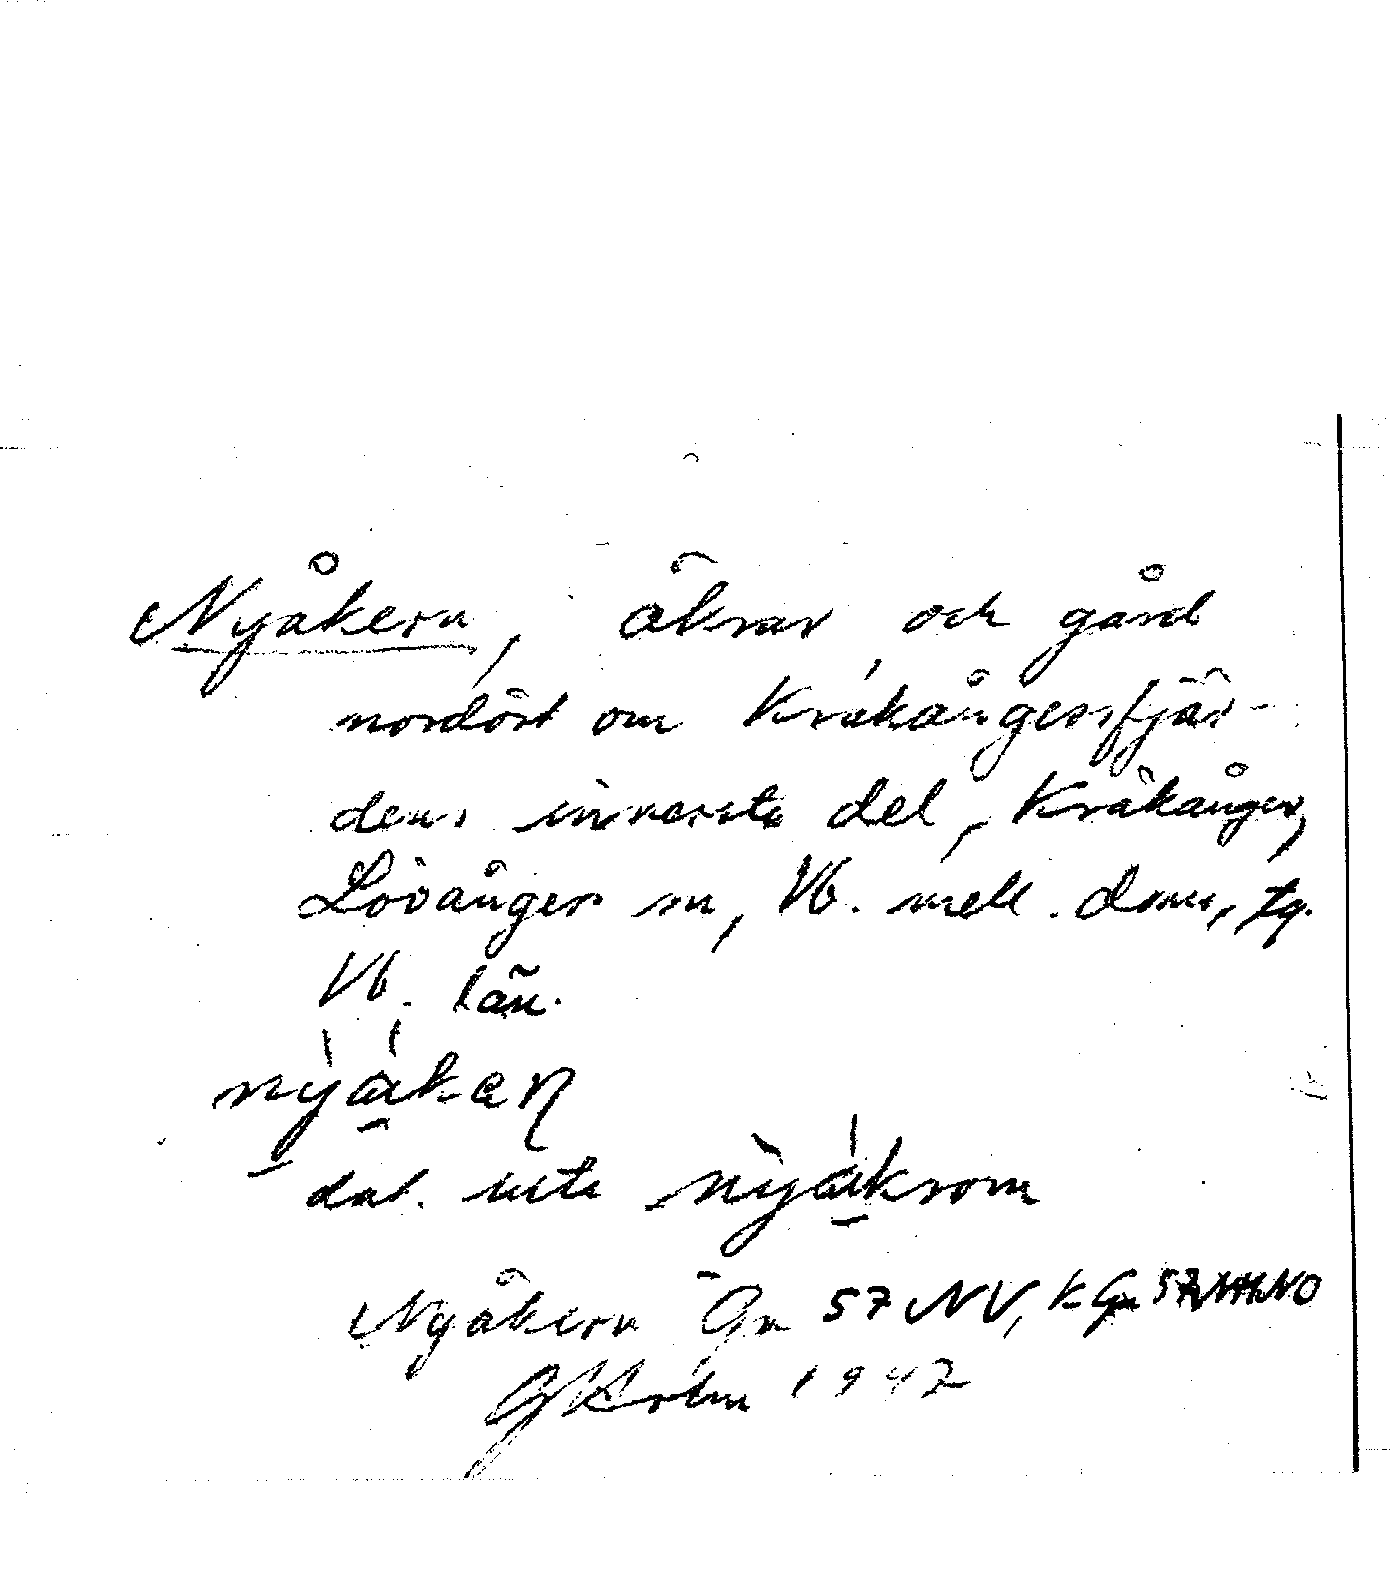 Nyåkern, åkrar och gård
nordöst om Kråkångersfjär-
dens innersta del, Kråkånger,
Lövånger sn, Vb. mell. doms, tg.
Vb. län.
nyåkeɳ
dat. uti nyåkrom
Nyåkern Gn 57 NV, k Gn 57 NO
G Holm 1947